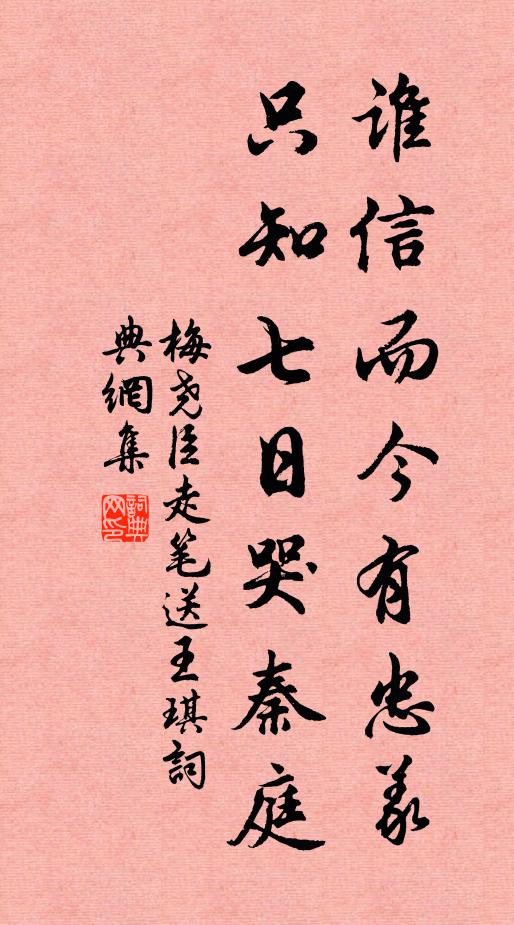 谁信而今有忠义
只知七日哭秦庭
梅尧臣走笔送王琪詞
典網集
詞典网印